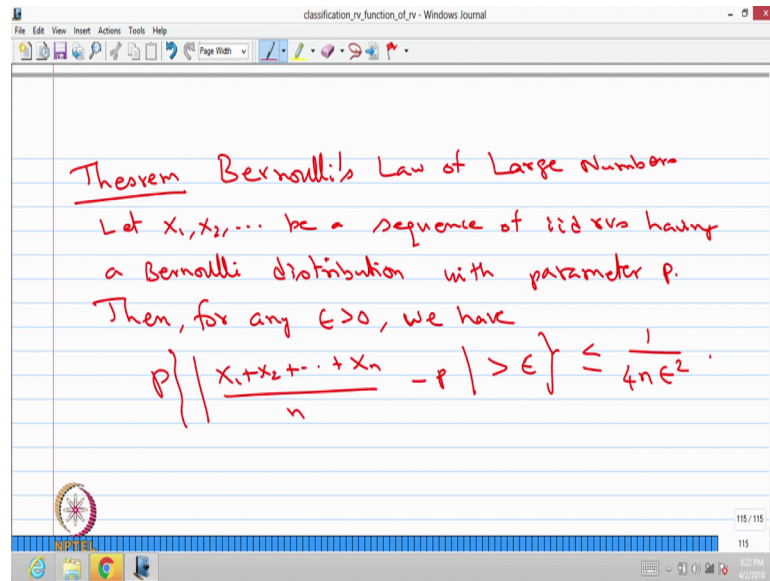 classification_rv_function_of_rv - Windows Journal
File Edit View Insert Actions Tools Help
Page Width
Theorem Bernoulli's Law of Large Numbers
Let X₁, X₂, ... be a sequence of iid rvs having
a Bernoulli distribution with parameter p.
Then, for any ϵ>0, we have
P{|(X₁+X₂+...+Xn)/n - p| > ϵ} ≤ 1/(4nϵ²).
NPTEL
115 / 115
115
3:22 PM
4/2/2018